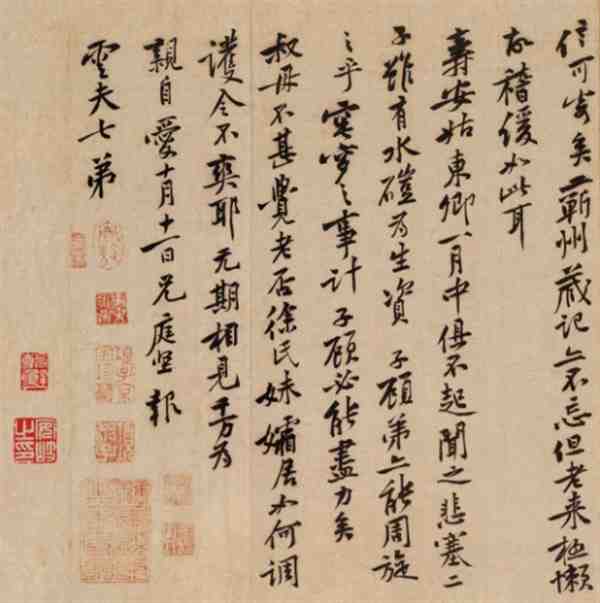 信可寄矣蘄州藏記亦不忘但老来極懶
故稽緩如此耳
壽安姑東卿一月中俱不起聞之悲塞二
子雖有水磑為生資子顧弟亦能周旋
之乎窀穸之事計子顧必能盡力矣
叔母不甚覺老否徐氏妹孀居如何調
護令不爽耶元期相見千万為
親自愛十月十一日兄庭堅報
雲夫七弟